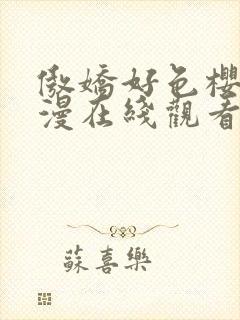 傲嬌好色櫻
漫在綫觀看
蘇喜樂